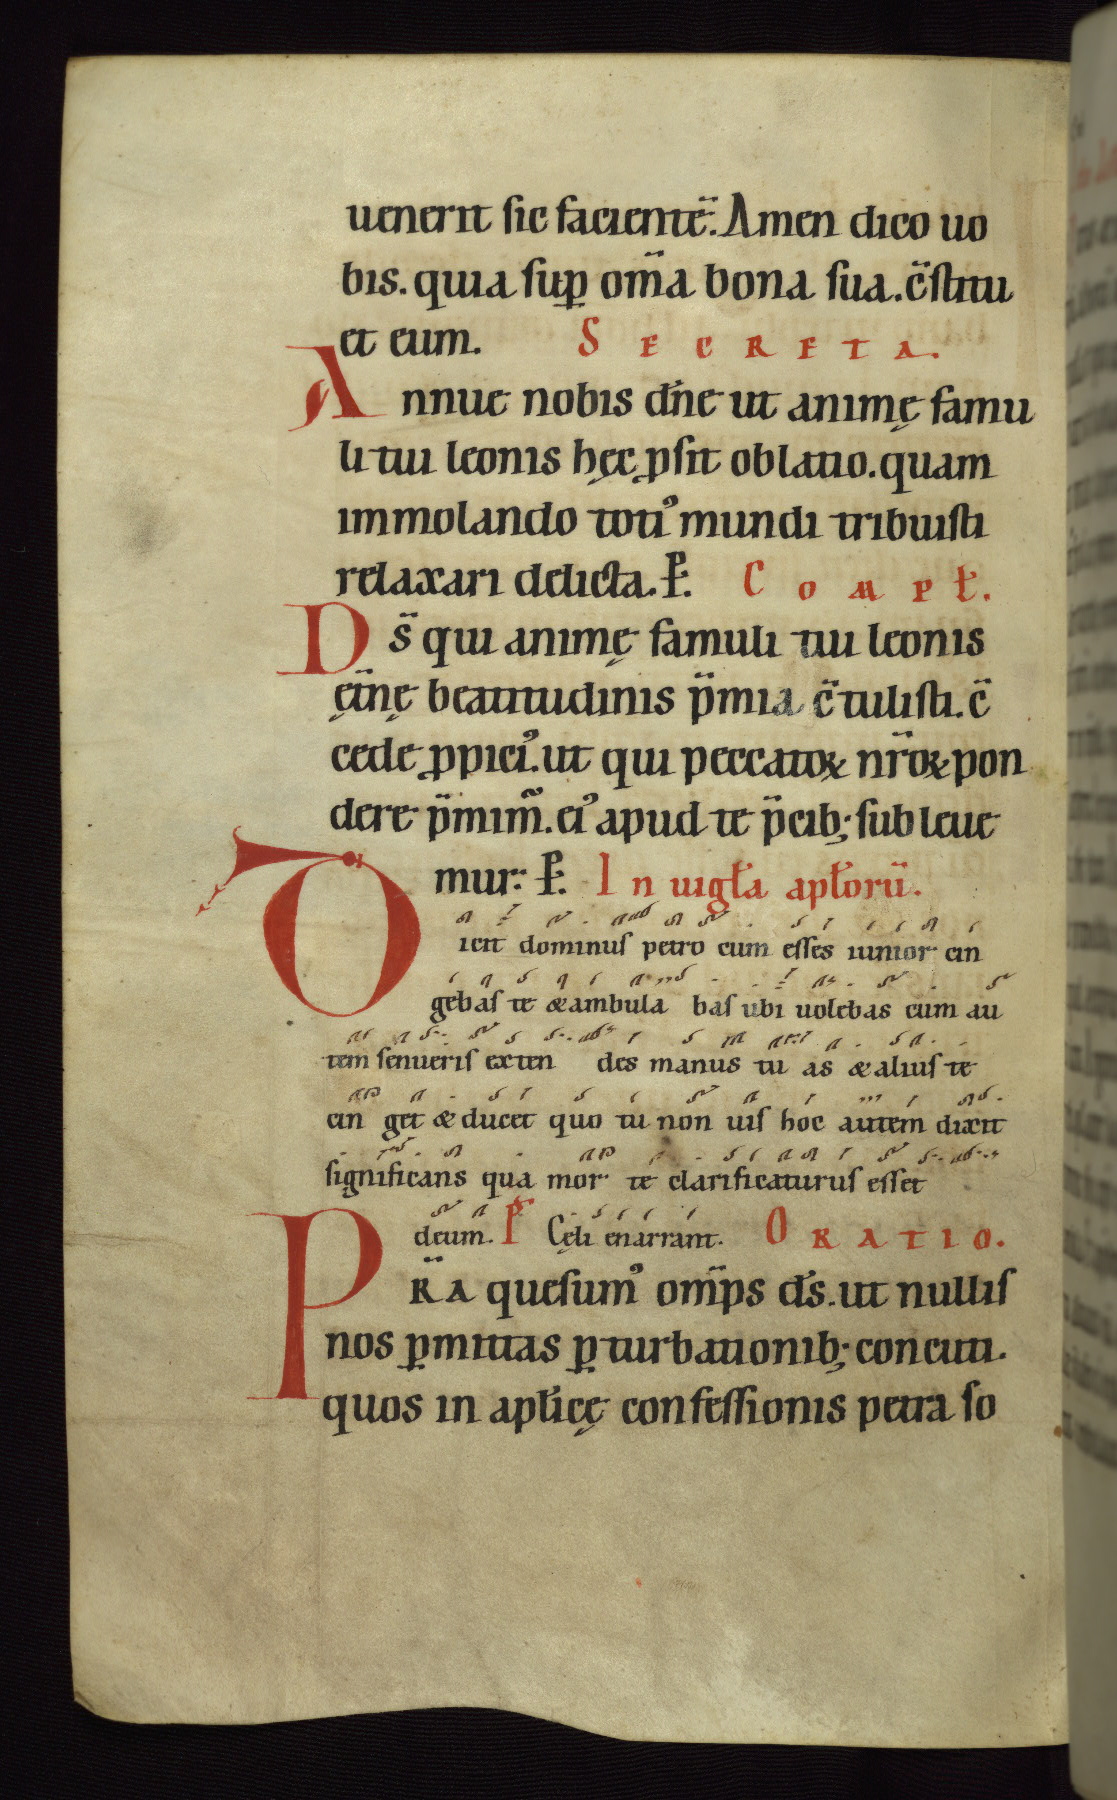 uenerit sic faciente᷉. Amen dico uo
bis. quia suꝑ om̅a bona sua. c̅stitu
et eum. SECRETA.
Annue nobis dn̅e ut animę famu
li tui leonis hęc ꝓsit oblatio. quam
immolando toti᾽ mundi tribuisti
relaxari delicta. P̅. COMPL̅.
Ds̅ qui animę famuli tui leonis
ęt̅nę beatitudinis p̅mia c̅tulisti. c̅
cede ꝓpici᾽. ut qui peccatoꝝ nr̅oꝝ pon
dere p̅mim᷉. ei᾽ apud te p̅cib; subleue
mur. P̅. In uigl̅a apl̅oru̅.
Dicit dominus petro cum esses iunior cin
gebas te & ambula bas ubi uolebas cum au
tem senueris exten des manus tu as & alius te
cin get & ducet quo tu non uis hoc autem dixit
significans qua mor te clarificaturus esset
deum. Ps̅ Cęli enarrant. ORATIO.
PR̅A quesum᾽ om̅ps ds̅. ut nullis
nos ꝑmittas ꝑturbationib; concuti.
quos in apl̅icę confessionis petra so